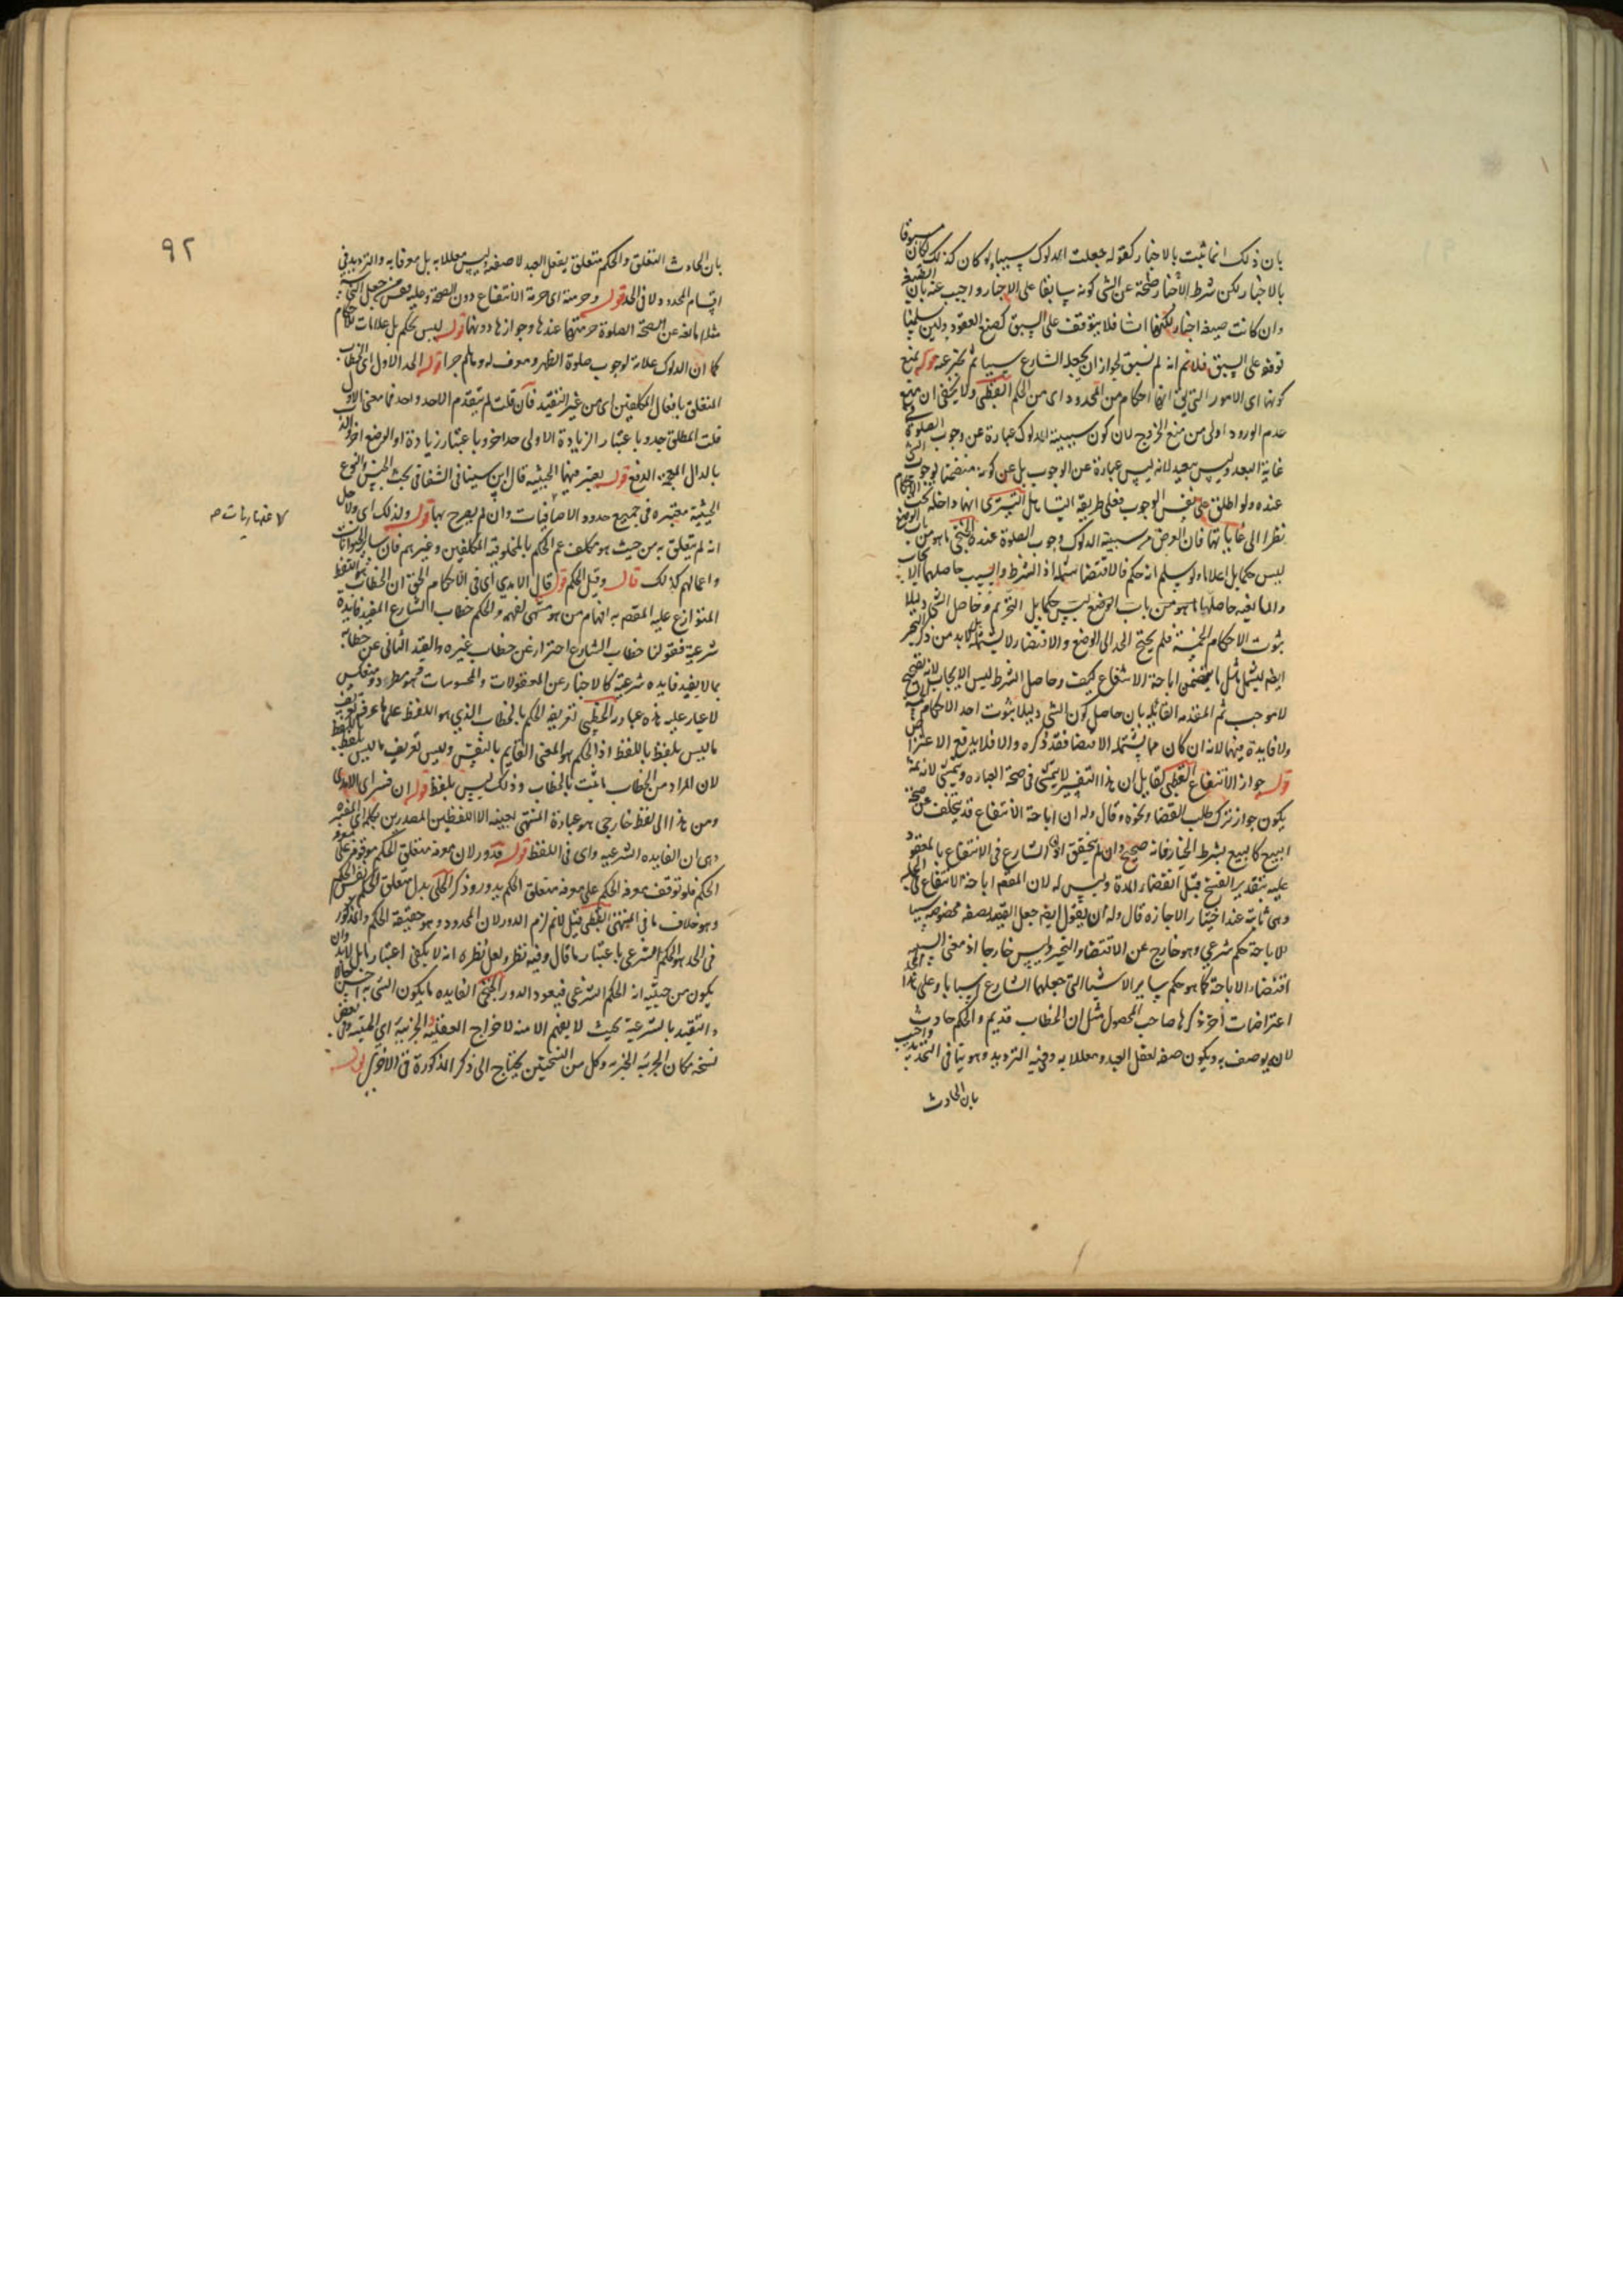 بان ذلك انما يثبت بالاخبار كقوله جعلت الدلوك سببا ولو كان كذلك لكان مسبوقا
بالاخبار لكن شرط الاخبار صحة عن الشي كونه سابقا على الاخبار واجيب عنه بان الصيغة
وان كانت صيغة اخبار لكنها انشا فلا يتوقف على السبق كصيغ العقود ولئن سلمنا
توقفه على السبق فلانم انه لم يسبق لجواز ان يجعله الشارع سببا ثم يخبر عنه قوله بمنع
كونها اي الامور التي احكام من المحدود اي من الحكم القطبي ولا يخفى ان منع
عدم الورود اولى من منع الخروج لان كون سببية الدلوك عبارة عن وجوب الصلوة
غاية البعد وليس ببعيد لانه ليس عبارة عن الوجوب بل عن كونه متضمنا لوجوب
عنده ولو اطلق على نفس الوجوب فعلى طريقة التساهل التستري انها داخلة تحت
نظرا الى غاياتها فان الغرض من سببية الدلوك وجوب الصلوة عنده الخنجي ما هو من باب الوضع
ليس حكما بل اعلاما ولو سلم انه حكم فالاقتضا يشمله اذ الشرط والسبب حاصلهما الايجاب
والمانعية حاصلها ما هو من باب الوضع ليس حكما بل التحريم وحاصل الشي دليلا
ثبوت الاحكام الخمسة فلم يحتج الحد الى الوضع والاقتضا لا يشمله فلابد من ذكر التخيير
ايضا ليشمل مثل ما يتضمن اباحة الانتفاع كيف وحاصل الشرط ليس الايجاب لانه تصحيح
لا موجب ثم المقدمة القائلة بان حاصل كون الشي دليلا ثبوت احد الاحكام
ولا فايدة فيها لانه ان كان مما يشتمله الاقتضا فقد ذكره والا فلا يدفع الاعتراض
قوله جواز الانتفاع القطبي لقايل ان هذا التفسير لا يتمشى في صحة العبادة ويتمشى لانه ثمة
يكون جواز ترك طلب القضا ونحوه وقال وله ان اباحة الانتفاع قد يتخلف عن صحة
البيع كالبيع بشرط الخيار فانه صحيح وان لم يتحقق اذن الشارع في الانتفاع بالمعقود
عليه بتقدير الفسخ قبل انقضاء المدة وليس له لان المقصود اباحة الانتفاع في الجملة
وهي ثابتة عند اختيار الاجازة قال وله ان يقول ايضا جعل القيد بصفة مخصوصة سببا
للاباحة حكم شرعي وهو خارج عن الاقتضا والتخيير وليس خارجا اذ معنى السببية
اقتضاء الاباحة كما هو حكم ساير الاشيا التي جعلها الشارع اسبابا وعلى هذا الحد
اعتراضات اخر ذكرها صاحب المحصول مثل ان الخطاب قديم والحكم حادث
لانه يوصف به ويكون صفة لفعل العبد ومعللا به وفيه الترديد وهو ينافي التحديد واجيب
بان الحادث
٩٢
بان الحادث التعلق والحكم متعلق بفعل العبد لا صفة وليس معللا به بل معرفا به والترديد في
اقسام المحدود لا في الحد قوله وحرمته اي حرمة الانتفاع دون الصحة وعليه يقس جعل الشي
مثلا مانعا عن الصحة الصلوة حرمتها عندها وجوازها دونها قوله ليس بحكم بل علامات للاحكام
كما ان الدلوك علامة لوجوب صلوة الظهر ومعرف له وهلم جرا قوله الحد الاول اي الخطاب
المتعلق بافعال المكلفين اي من غير التقييد فان قلت لم يتقدم الا حد واحد فما معنى الاول
قلت المطلق حد وباعتبار الزيادة الاولى حد اخر وباعتبار زيادة او الوضع اخر
بالدال المعجمة الدفع قوله يعتبر فيهما الحيثية قال ابن سينا في الشفا في بحث الجنس والنوع
الحيثية معتبرة في جميع حدود الاضافيات وان لم يصرح بها قوله ولذلك اي ولاجل
لاعتباريات م
انه لم يتعلق به من حيث هو مكلف عم الحكم بالمخلوقية المكلفين وغيرهم فان ساير الحيوانات
واعمالهم كذلك قال وقيل الحكم قوله قال الامدي اي في الاحكام الحق ان الخطاب هو اللفظ
المتواضع عليه المقصود به افهام من هو متهيئ لفهمه والحكم خطاب الشارع المفيد فايدة
شرعية فقولنا خطاب الشارع احتراز عن خطاب غيره والقيد الثاني عن خطابه
بما لا يفيد فايدة شرعية كالاخبار عن المعقولات والمحسوسات فهو مطرد ومنعكس
لا غبار عليه هذه عبارته الخطيبي تعريف الحكم بالخطاب الذي هو اللفظ على ما عرفه تعريف
ما ليس بلفظ باللفظ اذ الحكم هو المعنى القايم بالنفس وليس تعريف ما ليس بلفظ
لان المراد من الخطاب ما ثبت بالخطاب وذلك ليس بلفظ قوله ان فسر اي الامدي
ومن هذا الى لفظ خارجي هو عبارة المنتهى بعينه الا اللفظين المصدرين بكلمة اي المفسرة
وهي ان الفايدة الشرعية واي في اللفظ قوله فدور لان معرفة متعلق الحكم موقوف على
الحكم فلو توقف معرفة الحكم على معرفة متعلق الحكم يدور وذكر الحلي بدل متعلق الحكم نفس الحكم
وهو خلاف ما في المنتهى القطبي قيل لانم لزم الدور لان المحدود وهو حقيقة الحكم والمذكور
في الحد هو الحكم الشرعي باعتبار ما قال وفيه نظر ولعل نظره انه لا يكفي اعتبار ما بل لابد وان
يكون من حيث انه الحكم الشرعي فيعود الدور الخنجي الفايدة ما يكون الشي به احسن حالا
والتقييد بالشرعية بحيث لا يفهم الا منه لاخراج العقلية والجزئية اي الحسية وفي بعض
نسخه مكان الحسية الخبرية وكل من النسختين يحتاج الى ذكر المذكورة في الاخرى قوله